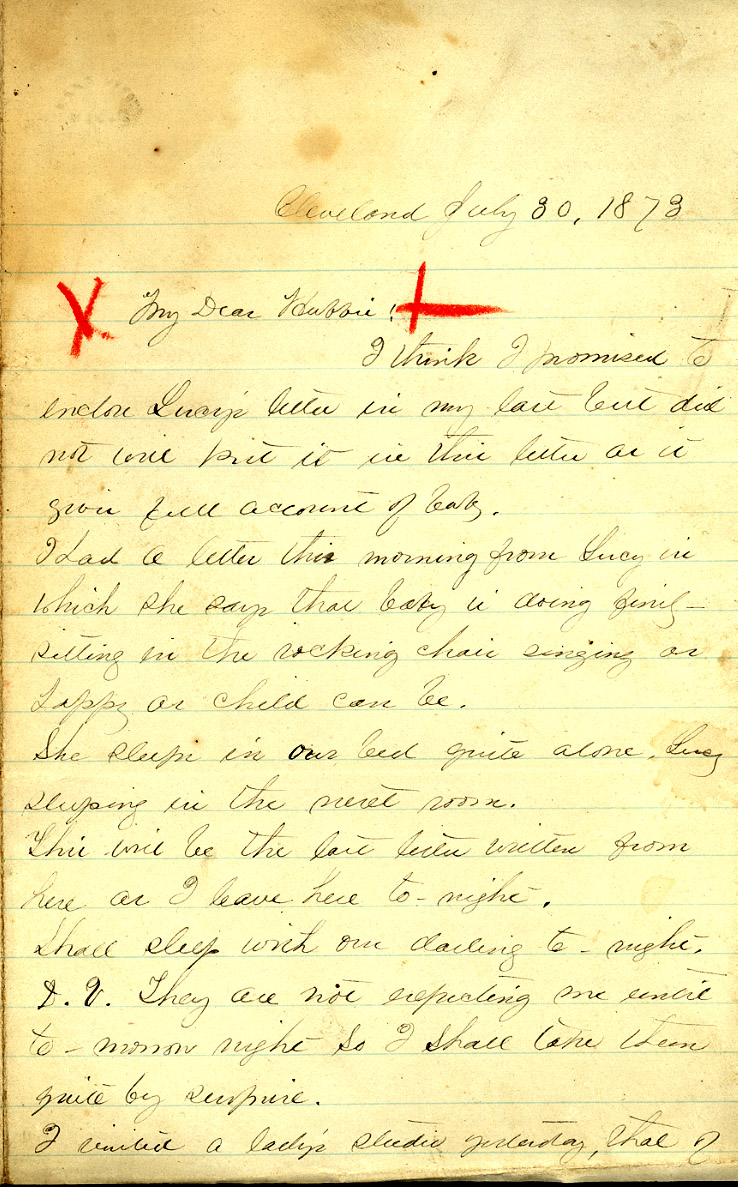 Cleveland July 30, 1873
My Dear Hubbie:
I think I promised to
enclose Lucy's letter in my last but did
not will put it in this letter as it
gives full account of baby.
I had a letter this morning from Lucy in
which she says that baby is doing finely-
sitting in the rocking chair singing as
happy as child can be.
She sleeps in our bed quite alone. Lucy
sleeping in the next room.
This will be the last letter written from
here as I leave here to-night.
Shall sleep with our darling to-night.
D.V. They are not expecting me until
to-morrow night so I shall take them
quite by surprise.
I visited a lady's studio yesterday, that of